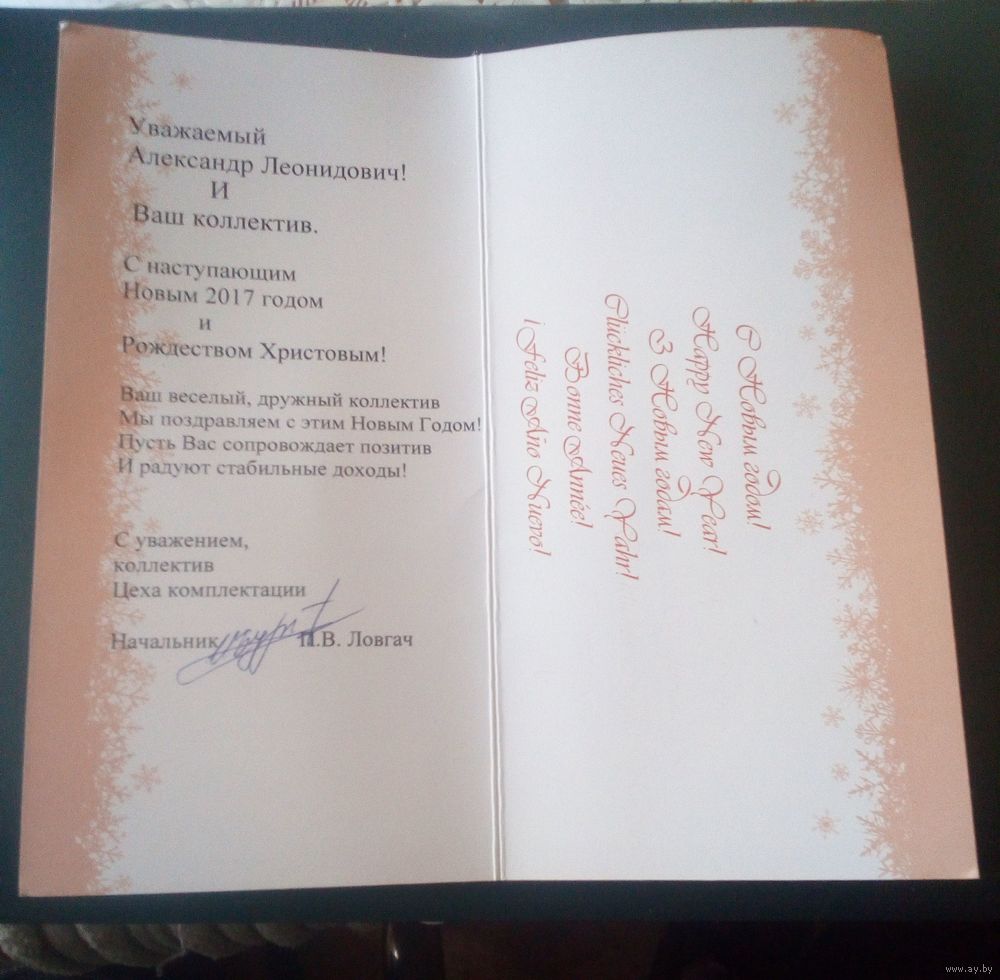 Уважаемый
Александр Леонидович!
И
Ваш коллектив.
С наступающим
Новым 2017 годом
и
Рождеством Христовым!
Ваш веселый, дружный коллектив
Мы поздравляем с этим Новым Годом!
Пусть Вас сопровождает позитив
И радуют стабильные доходы!
С уважением,
коллектив
Цеха комплектации
Начальник П.В. Ловгач
С Новым годом!
Happy New Year!
З Новым годам!
Glückliches Neues Yahr!
Bonne Année!
¡Feliz Año Nuevo!
www.ay.by